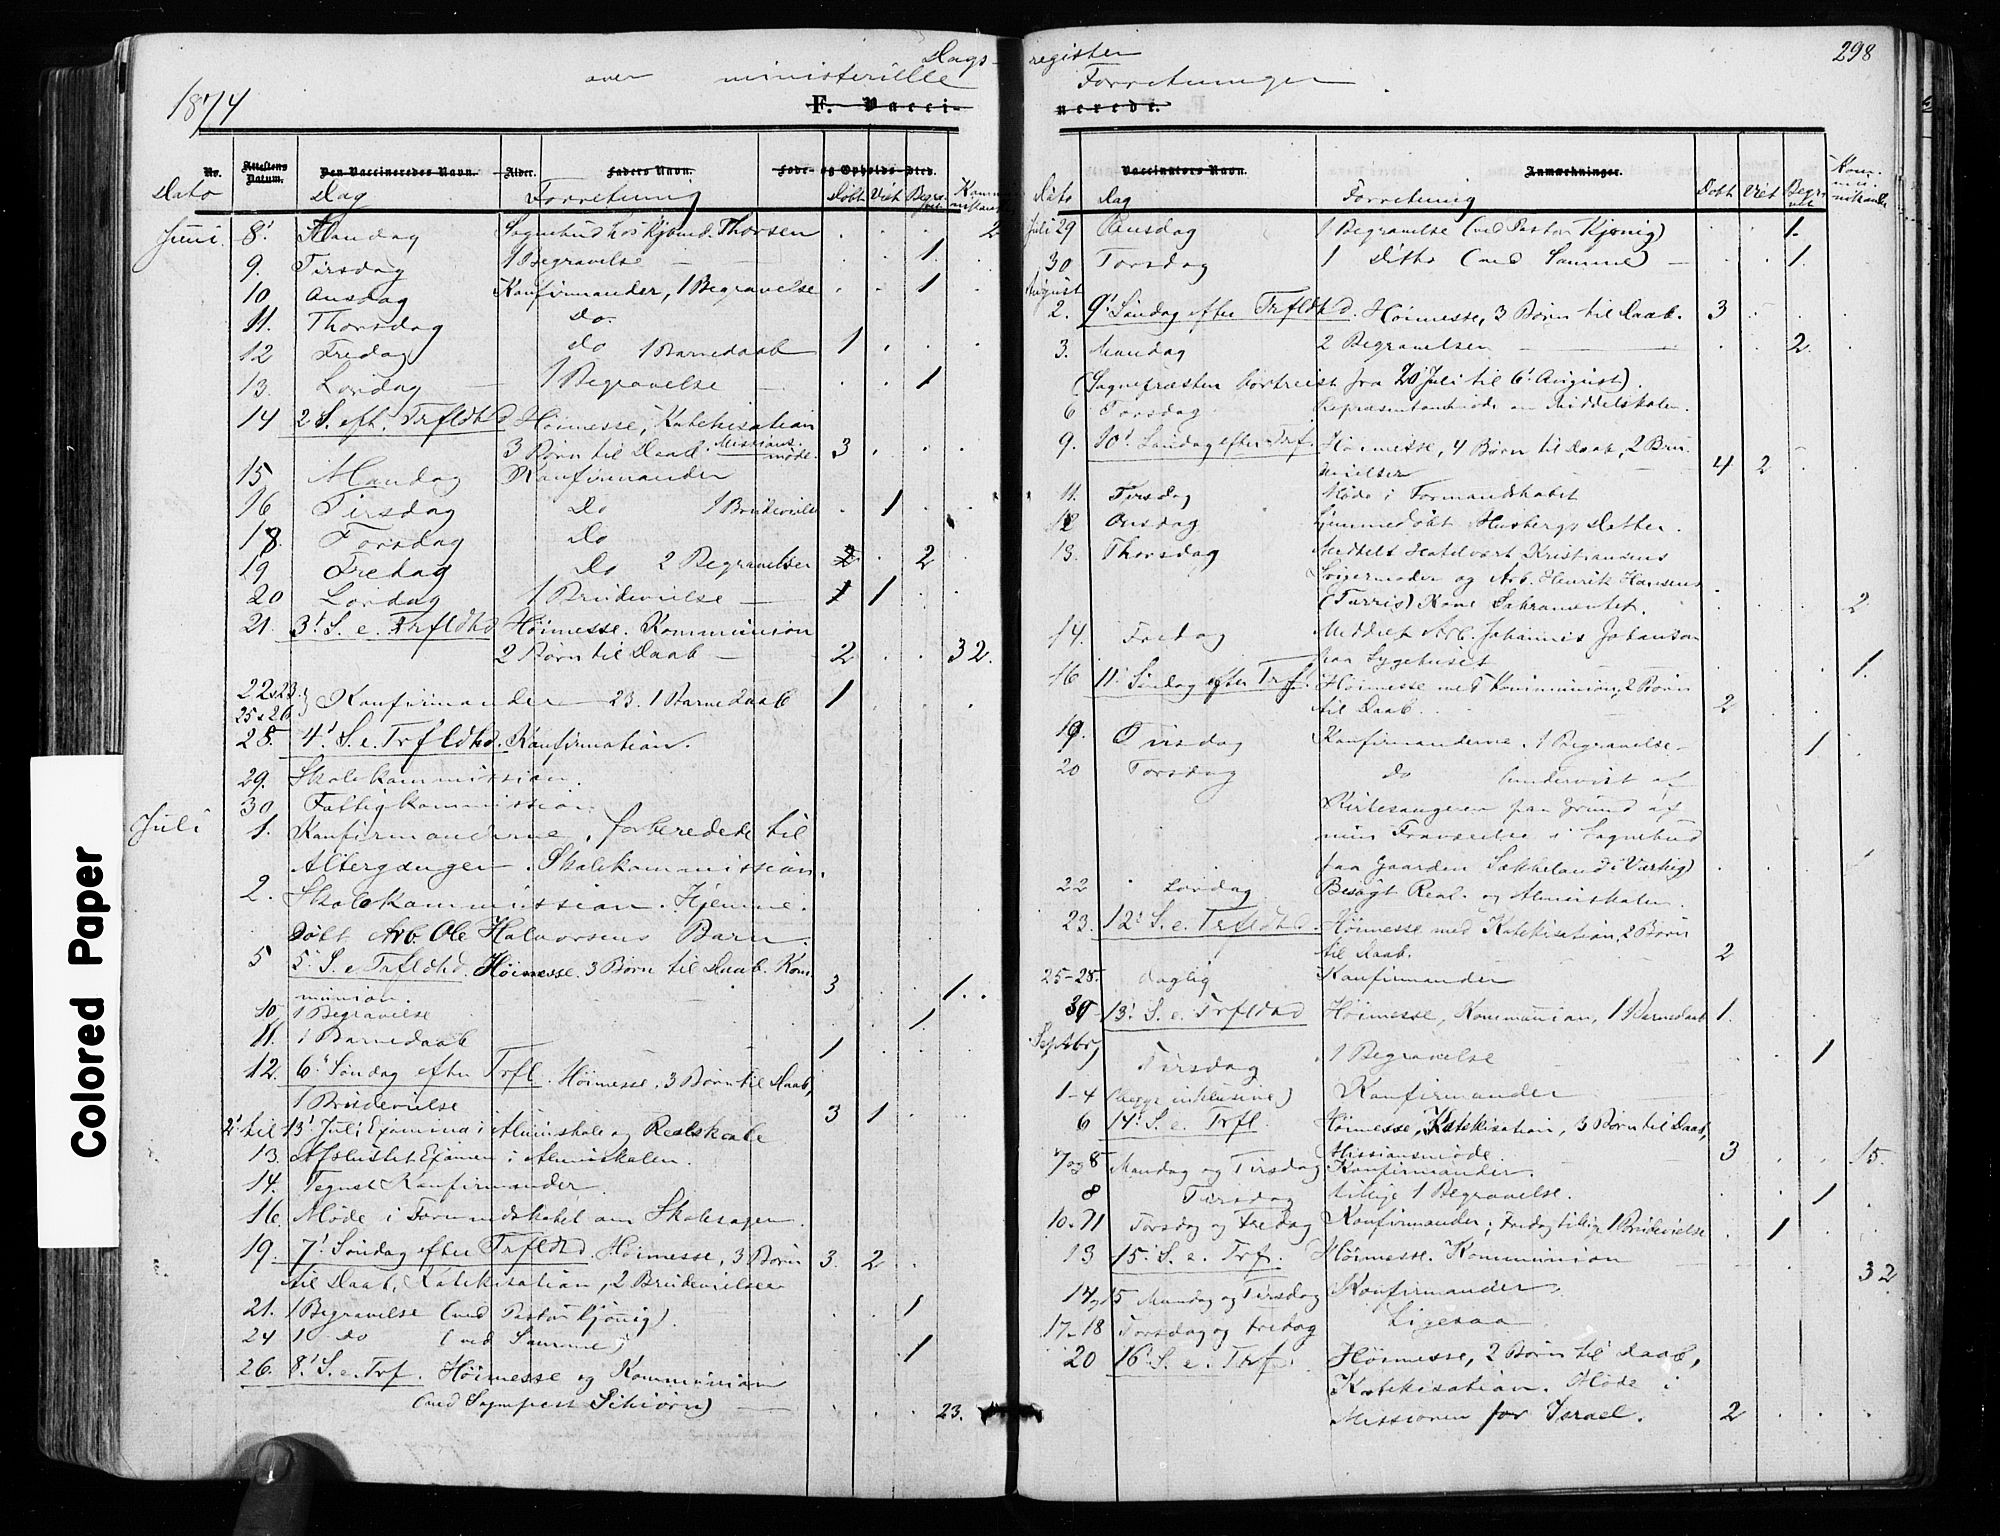 Dags-
over ministerielle
1874
F. Vacci-
No. Attestens Datum. Den Vaccineredes Navn. Alder. Faders Navn. Føde- og Opholds-Sted.
Dato Dag Forretning Døbt Viet Begra-vede Kommu-nikanter
Juni. 8' Mandag Sognebud hos Thorsen 2
9. Tirsdag 1 Begravelse — — 1
10 Onsdag Konfirmander, 1 Begravelse 1
11. Thorsdag Do.
12 Fredag Do 1 Barnedaab 1
13. Lørdag — 1 Begravelse — 1
14 2 S. eft. Trfldhd Høimesse, Katekisation
3 Børn til Daab. Missions-møde. 3
15 Mandag Konfirmander
16 Tirsdag Do 1 Brudevielse 1
18. Torsdag Do
19 Fredag Do 2 Begravelser 2
20 Lørdag 1 Brudevielse — 1
21. 3' S. e. Trfldhd Høimesse. Kommunion
2 Børn til Daab — 2 32.
22 & 23. 25 & 26. Konfirmander — 23. 1 Barnedaab 1
28. 4' S. e. Trfldhd. Konfirmation.
29. Skolekommission.
30 Fattigkommission.
Juli 1. Konfirmanderne, forberedede til
Altergangen. Skolekommission.
2. Skolekommission. Hjemme-
døbt Arb. Ole Halvorsens Barn.
5 5' S. e Trfldhd. Høimesse. 3 Børn til Daab. Kom-
munion. 3 1.
10. 1 Begravelse 1
11. 1 Barnedaab 1
12. 6' Søndag efter Trfl. Høimesse. 3 Børn til Daab,
1 Brudevielse 3 1
2' til 13' Juli Examina i Almueskole og Realskole
13. Afsluttet Examen i Almueskolen.
14. Tegnet Konfirmander.
16. Møde i Formandskabet om Skolesagen.
19. 7' Søndag efter Trfldhd Høimesse, 3 Børn 3. 2
til Daab, Katekisation, 2 Brudevielser
21. 1 Begravelse (ved Pastor Kjønig). 1
24 1 Do (ved Samme) 1
26. 8' S. e. Trf. Høimesse og Kommunion
(ved Sognepræst Schiørn) — 23.
register
298
Forretninger
nerede.
Vaccinators Navn. Anmærkninger.
Dato Dag Forretning Døbt Viet Begra-vede Kom-mu-nikanter
Juli 29 Onsdag 1 Begravelse (ved Pastor Kjønig) 1.
30 Torsdag 1 Ditto (ved Samme) — 1.
August
2. 9' Søndag efter Trfldhd. Høimesse, 3 Børn til Daab. 3
3. Mandag 2 Begravelser — 2.
(Sognepræsten bortreist fra 20' Juli til 6' August).
6 Torsdag Repræsentantmøde om Middelskolen.
9. 10' Søndag efter Trf. Høimesse, 4 Børn til Daab, 2 Bru-
devielser 4 2
11. Tirsdag Møde i Formandskabet
12 Onsdag Hjemmedøbt Husbergs Datter.
13. Thorsdag Meddelt Haldvart Kristiansens
Svigermoder og Arb. Henrik Hansens
(Turris) Kone Sakramentet. 2
14. Fredag Meddelt Arb. Johannes Johanson
paa Sygehuset 1.
16 11' Søndag efter Trf. Høimesse med Kommunion, 2 Børn
til Daab. 2
19. Onsdag Konfirmanderne. 1 Begravelse — 1
20 Torsdag do (undervist af
Kirkesangeren paa Grund af
min Fraværelse i Sognebud
paa Gaarden Sakkeland i Varteig) 1
22 Lørdag Besøgt Real- og Almueskolen.
23. 12' S. e. Trfldhd. Høimesse med Katekisation, 2 Børn
til Daab. 2
25-28. daglig Konfirmander
30 13' S. e. Trfldhd Høimesse, Kommunion, 1 Barnedaab 1.
Septbr. Tirsdag 1 Begravelse 1
1-4 (begge inklusive) Konfirmander
6 14' S. e. Trfl. Høimesse, Katekisation, 3 Børn til Daab,
Missionsmøde. 3 15.
7 og 8 Mandag og Tirsdag Konfirmander.
8 Tirsdag tillige 1 Begravelse. 1
10-11 Torsdag og Fredag Konfirmander; Fredag tillige 1 Brudevielse 1
13 15' S. e. Trf. Høimesse. Kommunion 32
14 og 15 Mandag og Tirsdag Konfirmander.
17-18 Torsdag og Fredag Ligesaa
20 16' S. e. Trf. Høimesse, 2 Børn til Daab,
Katekisation. Møde i
Missionen for Israel. 2
Colored Paper